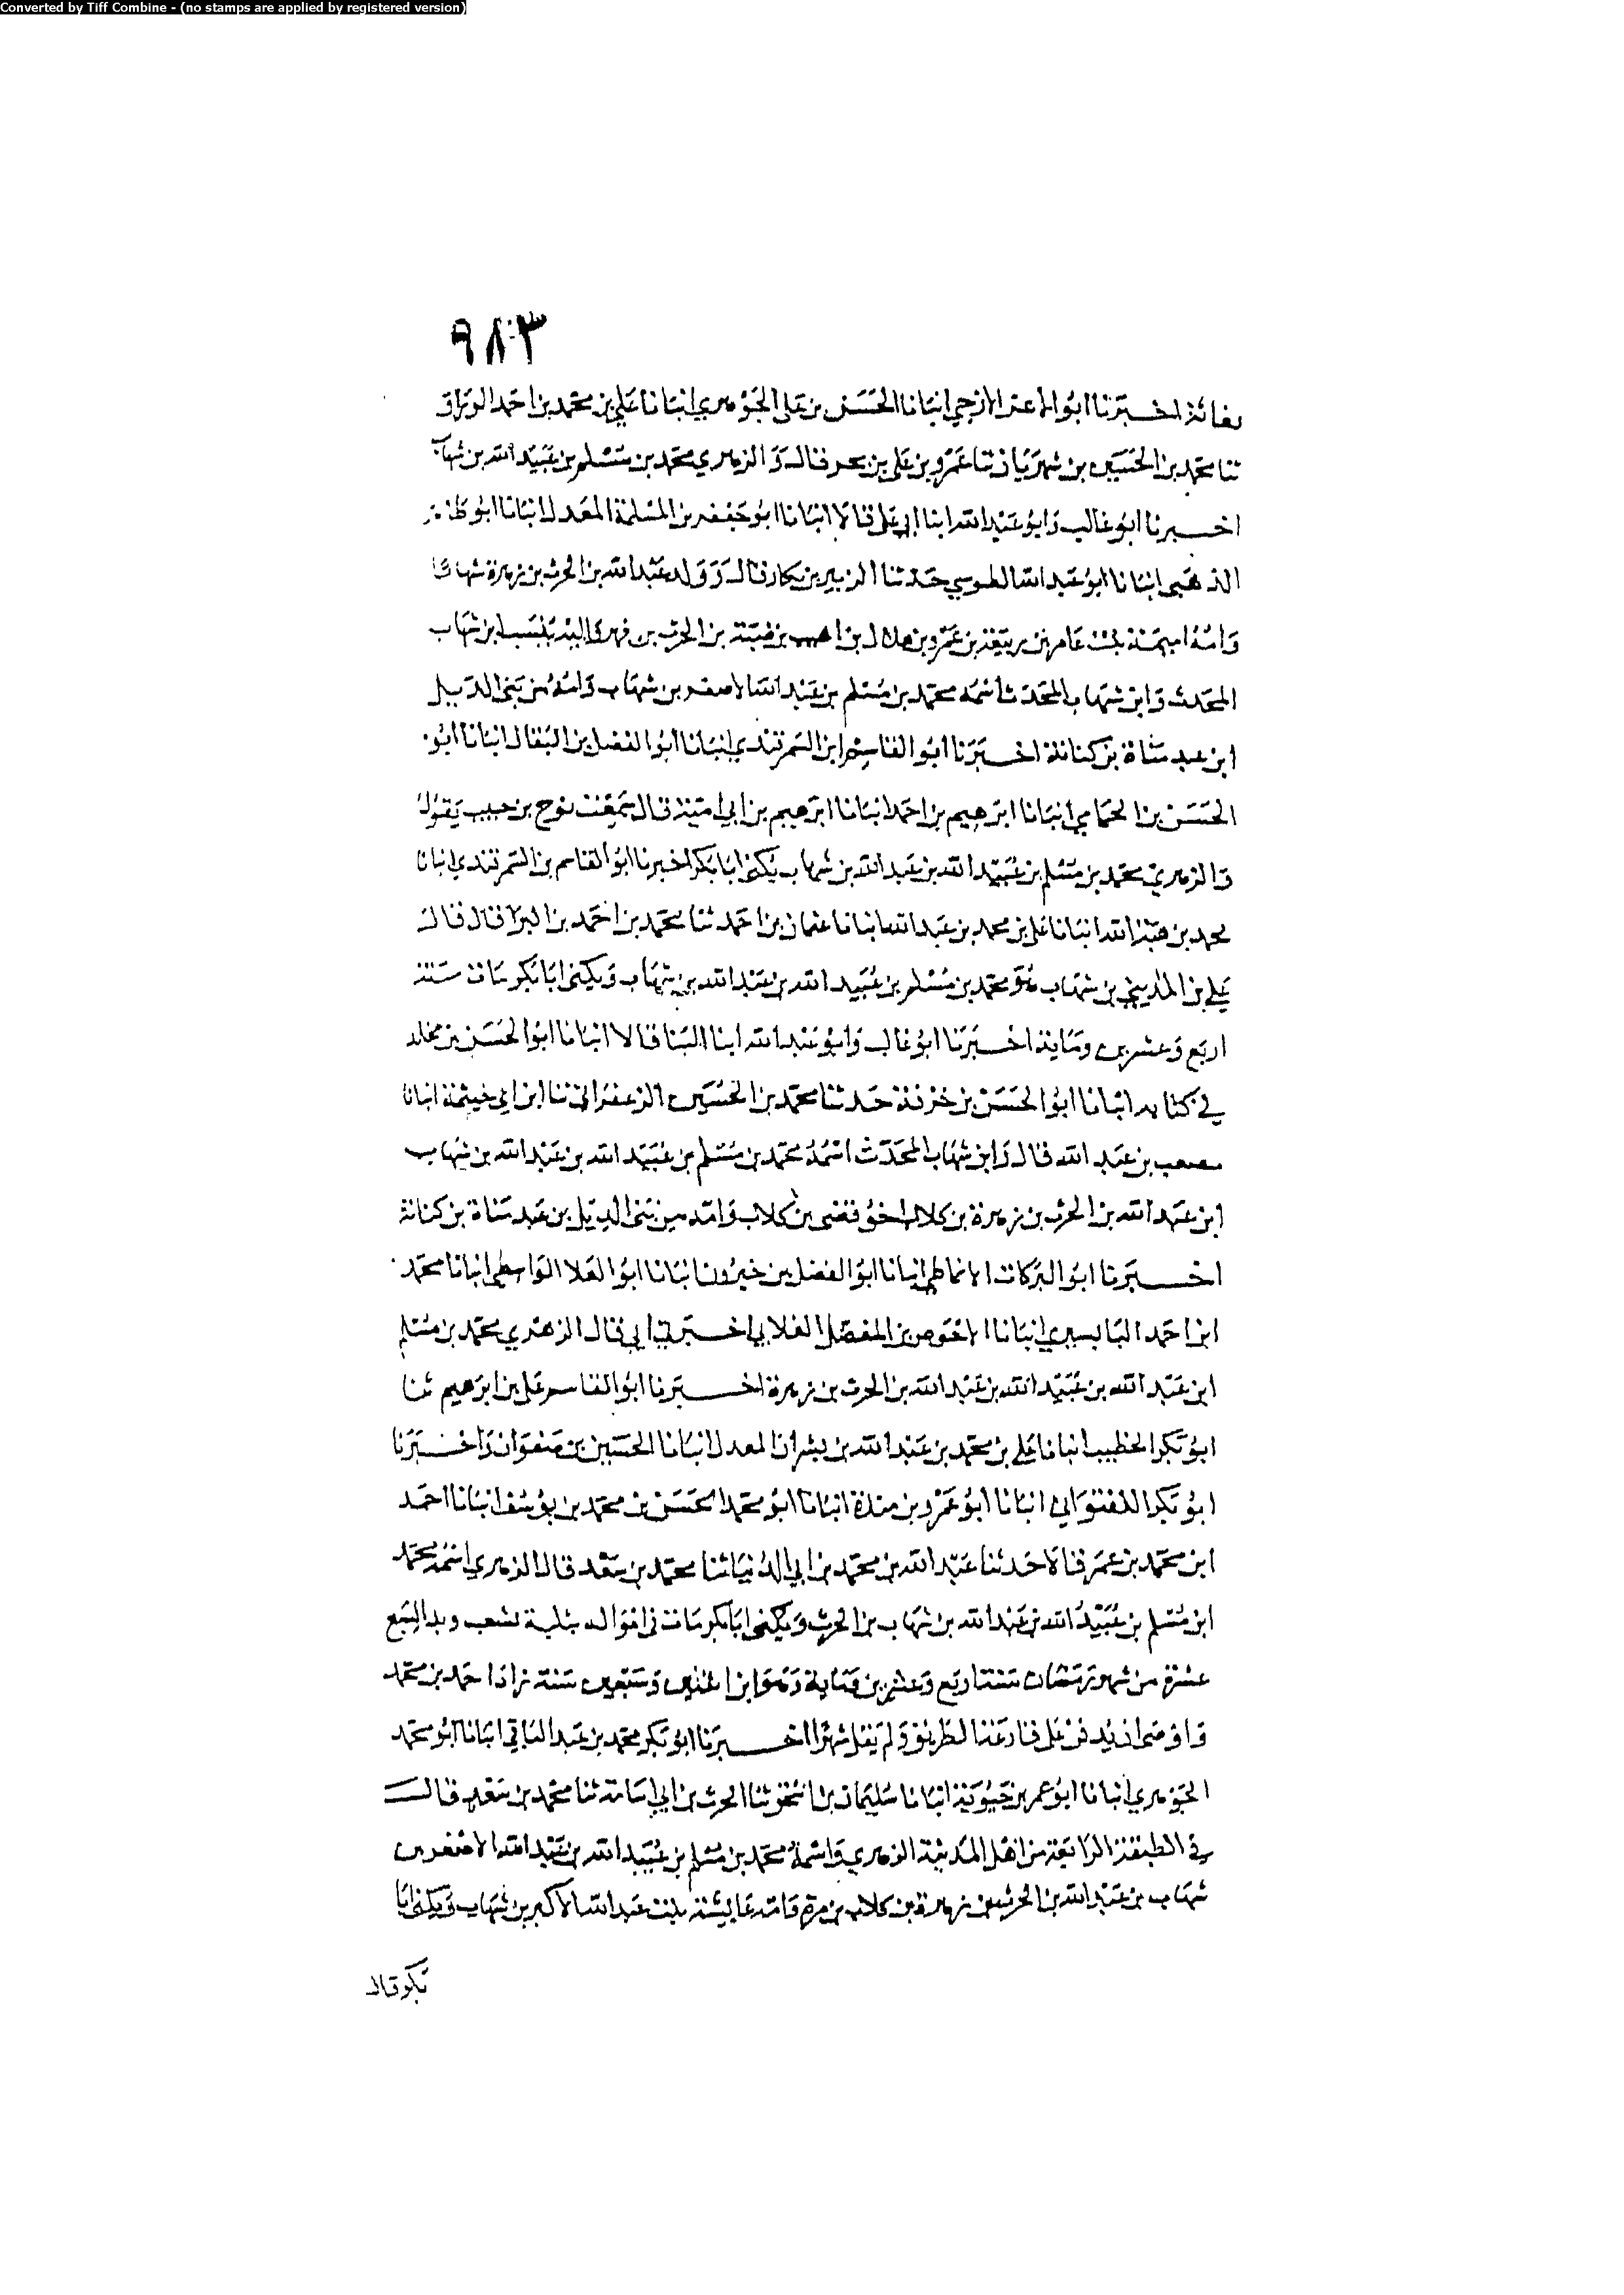 Converted by Tiff Combine - (no stamps are applied by registered version)
٩٨٣
اخبرنا ابو الاعز الازجي انبانا الحسن بن على الجوهري انبانا علي بن محمد بن احمد الوراق
ثنا محمد بن الحسين بن شهريار ثنا عمرو بن على بن بحر قال والزهري محمد بن مسلم بن عبيد الله بن شهاب
اخبرنا ابو غالب وابو عبد الله ابنا ابى على قالا انبانا ابو جعفر بن المسلمة المعدل انبانا ابو طاهر
الذهبى انبانا ابو عبد الله الطوسي حدثنا الزبير بن بكار قال وولد عبد الله بن الحرث بن زهرة شهابا
وامه اميمة بنت عامر بن ربيعة بن عمرو بن هلال بن اهيب بن ضبة بن الحرث بن فهر واليه ينسب ابن شهاب
المحدث وابن شهاب المحدث اسمه محمد بن مسلم بن عبد الله الاصغر بن شهاب وامه من بنى الديل
ابن عبد مناة بن كنانة اخبرنا ابو القاسم ابن السمرقندي انبانا ابو الفضل بن البقال انبانا ابو
الحسن بن الحمامي انبانا ابرهيم بن احمد انبانا ابرهيم بن ابي امية قال سمعت نوح بن حبيب يقول
والزهري محمد بن مسلم بن عبيد الله بن عبد الله بن شهاب يكنى ابا بكر اخبرنا ابو القاسم بن السمرقندي انبانا
محمد بن هبة الله انبانا على بن محمد بن عبد الله انبانا عثمان بن احمد ثنا محمد بن احمد بن البرا قال قال
علي بن المديني بن شهاب هو محمد بن مسلم بن عبيد الله بن عبد الله بن شهاب ويكنى ابا بكر مات سنة
اربع وعشرين وماية اخبرنا ابو غالب وابو عبد الله ابنا البنا قالا انبانا ابو الحسن بن مخلد
في كتابه انبانا ابو الحسن بن خزفة حدثنا محمد بن الحسين الزعفراني ثنا ابن ابي خيثمة انبانا
مصعب بن عبد الله قال وابن شهاب المحدث اسمه محمد بن مسلم بن عبيد الله بن عبد الله بن شهاب
ابن عبد الله بن الحرث بن زهرة بن كلاب اخو قصى بن كلاب وامه من بنى الديل بن عبد مناة بن كنانة
اخبرنا ابو البركات الانماطي انبانا ابو الفضل بن خيرون انبانا ابو العلا الواسطي انبانا محمد
ابن احمد البابسيري انبانا الاحوص بن المفضل الغلابي اخبرني ابي قال الزهري محمد بن مسلم
ابن عبد الله بن عبيد الله بن عبد الله بن الحرث بن زهرة اخبرنا ابو القاسم على بن ابرهيم ثنا
ابو بكر الخطيب انبانا علي بن محمد بن عبد الله بن بشران المعدل انبانا الحسين بن صفوان واخبرنا
ابو بكر اللفتواني انبانا ابو عمرو بن مندة انبانا ابو محمد الحسن بن محمد بن يوسف انبانا احمد
ابن محمد بن عمر قالا حدثنا عبد الله بن محمد بن ابي الدنيا ثنا محمد بن سعد قال الزهري اسمه محمد
ابن مسلم بن عبيد الله بن عبد الله بن شهاب بن الحرث ويكنى ابا بكر مات في امواله بثلية لسبع
عشرة من شهر رمضان سنة اربع وعشرين وماية وهو ابن اثنين وسبعين سنة زاد احمد بن محمد
واوصى ان يدفن على قارعة الطريق ولم يقل شهرا اخبرنا ابو بكر محمد بن عبد الباقي انبانا ابو محمد
الجوهري انبانا ابو عمر بن حيوية انبانا سليمان بن اسحق ثنا الحرث بن ابي اسامة ثنا محمد بن سعد قال
في الطبقة الرابعة من اهل المدينة الزهري واسمه محمد بن مسلم بن عبيد الله بن عبد الله الاصغر بن
شهاب بن عبد الله بن الحرث بن زهرة بن كلاب بن مرة وامه عايشة بنت عبد الله الاكبر بن شهاب ويكنى ابا
بكر قال